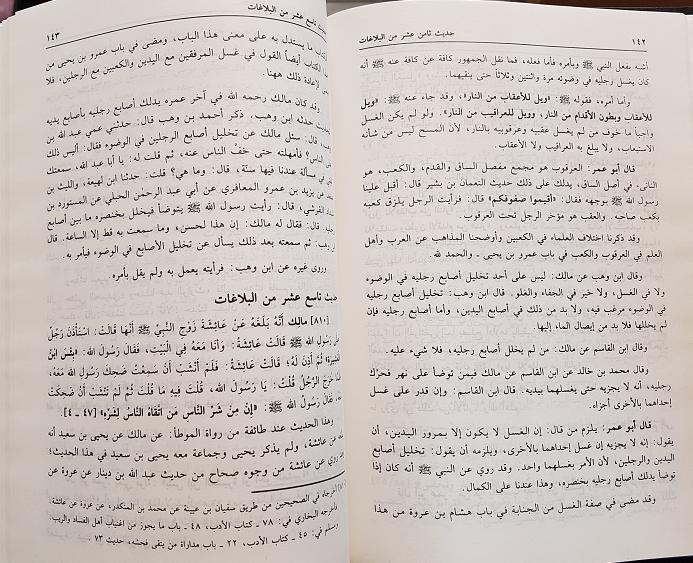 ١٤٢
حديث ثامن عشر من البلاغات
أشبه بفعل النبي ﷺ وبأمره فأما فعله، فما نقل الجمهور كافة عن كافة عنه ﷺ أنه
كان يغسل رجليه في وضوئه مرة واثنتين وثلاثاً حتى ينقيهما.
وأما أمره، فقوله ﷺ: «ويل للأعقاب من النار»، وقد جاء عنه ﷺ: «ويل
للأعقاب وبطون الأقدام من النار، وويل للعراقيب من النار». ولو لم يكن الغسل
واجباً ما خوف من لم يغسل عقبيه وعرقوبيه بالنار، لأن المسح ليس من شأنه
الاستيعاب، ولا يبلغ به العراقيب ولا الأعقاب.
قال أبو عمر: العرقوب هو مجمع مفصل الساق والقدم، والكعب، هو
الناتئ في أصل الساق، يدلك على ذلك حديث النعمان بن بشير قال: أقبل علينا
رسول الله ﷺ بوجهه فقال: «أقيموا صفوفكم» قال: فرأيت الرجل يلزق كعبه
بكعب صاحبه. والعقب هو مؤخر الرجل تحت العرقوب.
وقد ذكرنا اختلاف العلماء في الكعبين وأوضحنا المذاهب عن العرب وأهل
العلم في العرقوب والكعب في باب عمرو بن يحيى ـ والحمد لله.
وقال ابن وهب عن مالك: ليس على أحد تخليل أصابع رجليه في الوضوء
ولا في الغسل، ولا خير في الجفاء والغلو. قال ابن وهب: تخليل أصابع رجليه
في الوضوء مرغب فيه، ولا بد من ذلك في أصابع اليدين، وأما أصابع رجليه فإن
لم يخللها فلا بد من إيصال الماء إليها.
وقال ابن القاسم عن مالك: من لم يخلل أصابع رجليه، فلا شيء عليه.
وقال محمد بن خالد عن ابن القاسم عن مالك فيمن توضأ على نهر فحرّك
رجليه، أنه لا يجزيه حتى يغسلهما بيديه. قال ابن القاسم: وإن قدر على غسل
إحداهما بالأخرى أجزاه.
قال أبو عمر: يلزم من قال: إن الغسل لا يكون إلا بمرور اليدين، أن
يقول: إنه لا يجزيه إن غسل إحداهما بالأخرى، ويلزمه أن يقول: تخليل أصابع
اليدين والرجلين، لأن الأمر بغسلهما واحد. وقد روي عن النبي ﷺ أنه كان إذا
توضأ يدلك أصابع رجليه بخنصره، وهذا عندنا على الكمال.
وقد مضى في صفة الغسل من الجنابة في باب هشام بن عروة من هذا
تاسع عشر من البلاغات
١٤٣
ما يستدل به على معنى هذا الباب، ومضى في باب عمرو بن يحيى من
الكتاب أيضاً القول في غسل المرفقين مع اليدين والكعبين مع الرجلين، فلا
لإعادة ذلك ههنا.
وقد كان مالك رحمه الله في آخر عمره يدلك أصابع رجليه بأصابع يديه
حديث حدثه ابن وهب. ذكر أحمد بن وهب قال: حدثني عمي عبد الله بن
قال: سئل مالك عن تخليل أصابع الرجلين في الوضوء فقال: أليس ذلك
على الناس؟ فأمهلته حتى خفّ الناس عنه، ثم قلت له: يا أبا عبد الله، سمعتك
في مسألة عندنا فيها سنة، قال: وما هي؟ قلت: حدثنا ابن لهيعة، والليث بن
عن يزيد بن عمرو المعافري عن أبي عبد الرحمٰن الحبلي عن المستورد بن
القرشي، قال: رأيت رسول الله ﷺ يتوضأ فيخلل بخنصره ما بين أصابع
قال: فقال له مالك: إن هذا لحسن، وما سمعت به قط إلا الساعة. قال
وهب: ثم سمعته بعد ذلك يسأل عن تخليل الأصابع في الوضوء فيأمر به.
وروى غيره عن ابن وهب: فرأيته يعمل به ولم يقل يأمره.
حديث تاسع عشر من البلاغات
[٨١٠] مالك أَنَّهُ بَلَغَهُ عَنْ عَائِشَةَ زَوْجِ النَّبِيِّ ﷺ أَنَّهَا قَالَتْ: اسْتَأْذَنَ رَجُلٌ
عَلَى رَسُولِ اللهِ ﷺ قَالَتْ عَائِشَةُ: وَأَنَا مَعَهُ فِي الْبَيْتِ، فَقَالَ رَسُولُ اللهِ: «بِئْسَ ابْنُ
ثُمَّ أَذِنَ لَهُ؛ قَالَتْ عَائِشَةُ: فَلَمْ أَنْشَبْ أَنْ سَمِعْتُ ضَحِكَ رَسُولِ اللهِ مَعَهُ،
خَرَجَ الرَّجُلُ قُلْتُ: يَا رَسُولَ اللهِ، قُلْتَ فِيهِ مَا قُلْتَ ثُمَّ لَمْ تَنْشَبْ أَنْ ضَحِكْتَ
فَقَالَ رَسُولُ اللهِ ﷺ: «إِنَّ مِنْ شَرِّ النَّاسِ مَنِ اتَّقَاهُ النَّاسُ لِشَرِّهِ» [٤٧ ـ ٤].
وهذا الحديث عند طائفة من رواة الموطأ: عن مالك عن يحيى بن سعيد أنه
عن عائشة، ولم يذكر يحيى وجماعة معه يحيى بن سعيد في هذا الحديث؛
روي عن عائشة من وجوه صحاح من حديث عبد الله بن دينار عن عروة عن
أخرجاه في الصحيحين من طريق سفيان بن عيينة عن محمد بن المنكدر، عن عروة عن عائشة.
وأخرجه البخاري في: ٧٨ ـ كتاب الأدب، ٤٨ ـ باب ما يجوز من اغتياب أهل الفساد والريب.
ومسلم في: ٤٥ ـ كتاب الأدب، ٢٢ ـ باب مداراة من يتقى فحشه، حديث ٧٣.